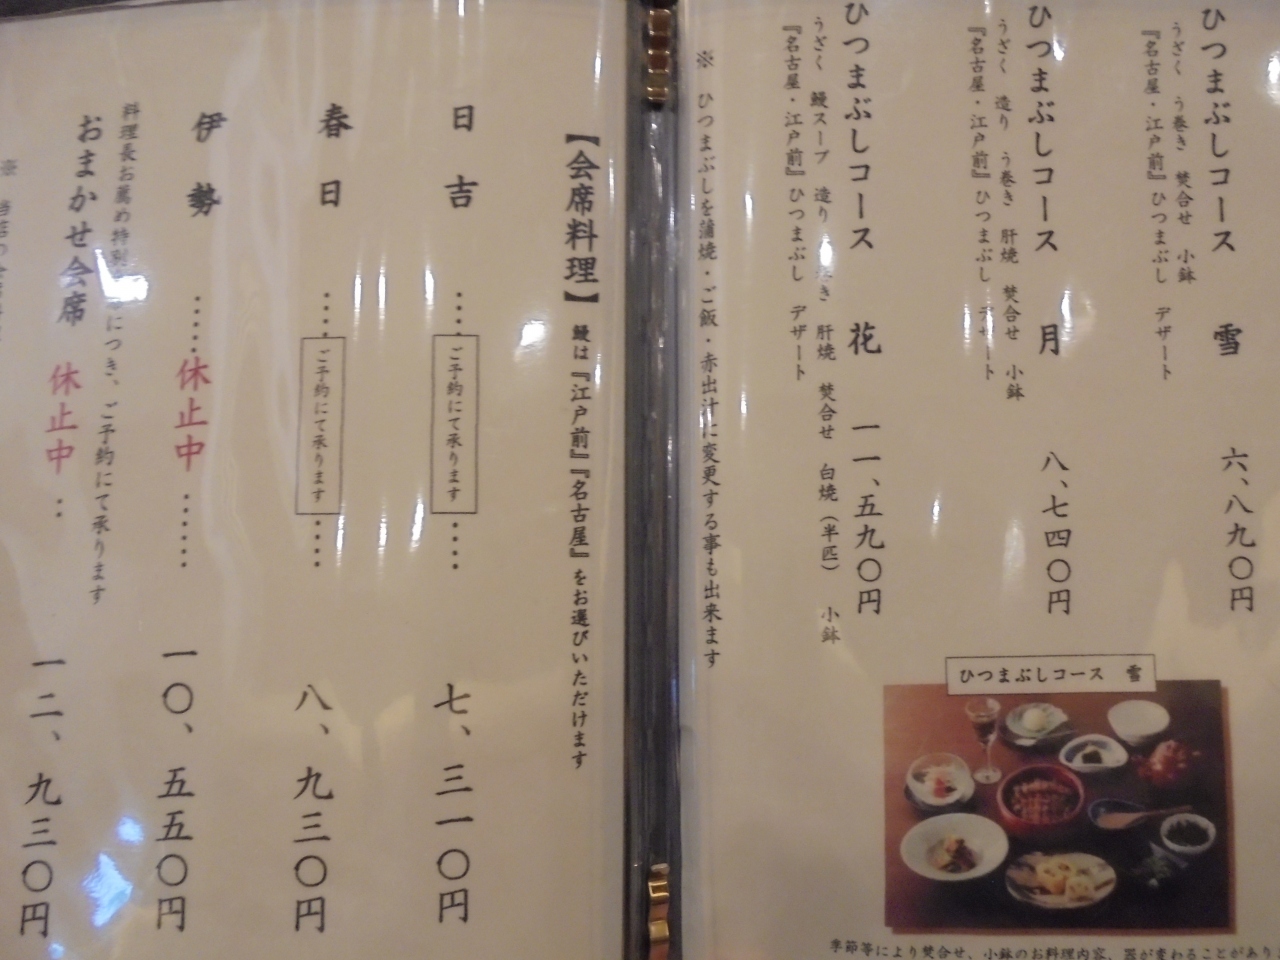 ひつまぶしコース 雪 六、八九〇円
うざく う巻き 焚合せ 小鉢
『名古屋・江戸前』ひつまぶし デザート
ひつまぶしコース 月 八、七四〇円
うざく 造り う巻き 肝焼 焚合せ 小鉢
『名古屋・江戸前』ひつまぶし デザート
ひつまぶしコース 花 一一、五九〇円
うざく 鰻スープ 造り う巻き 肝焼 焚合せ 白焼(半匹) 小鉢
『名古屋・江戸前』ひつまぶし デザート
※ ひつまぶしを蒲焼・ご飯・赤出汁に変更する事も出来ます
ひつまぶしコース 雪
季節等により焚合せ、小鉢のお料理内容、器が変わることがあり
【会席料理】 鰻は『江戸前』『名古屋』をお選びいただけます
日吉 ‥‥ ご予約にて承ります ‥‥ 七、三一〇円
春日 ‥‥ ご予約にて承ります ‥‥ 八、九三〇円
伊勢 ‥‥‥ 休止中 ‥‥‥ 一〇、五五〇円
料理長お薦め特別 につき、ご予約にて承ります
おまかせ会席 休止中 ‥ 一二、九三〇円